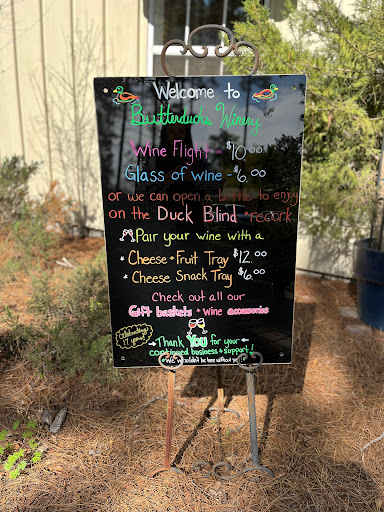 Welcome to
Butterducks Winery
Wine Flight - $10.00
Glass of wine - $6.00
or we can open a bottle to enjoy
on the Duck Blind + recork
Pair your wine with a
* Cheese + Fruit Tray $12.00
* Cheese Snack Tray $6.00
Check out all our
Gift baskets + wine accessories
Celebrating
17 years!
Thank You for your
continued business & support!
We wouldn't be here without you